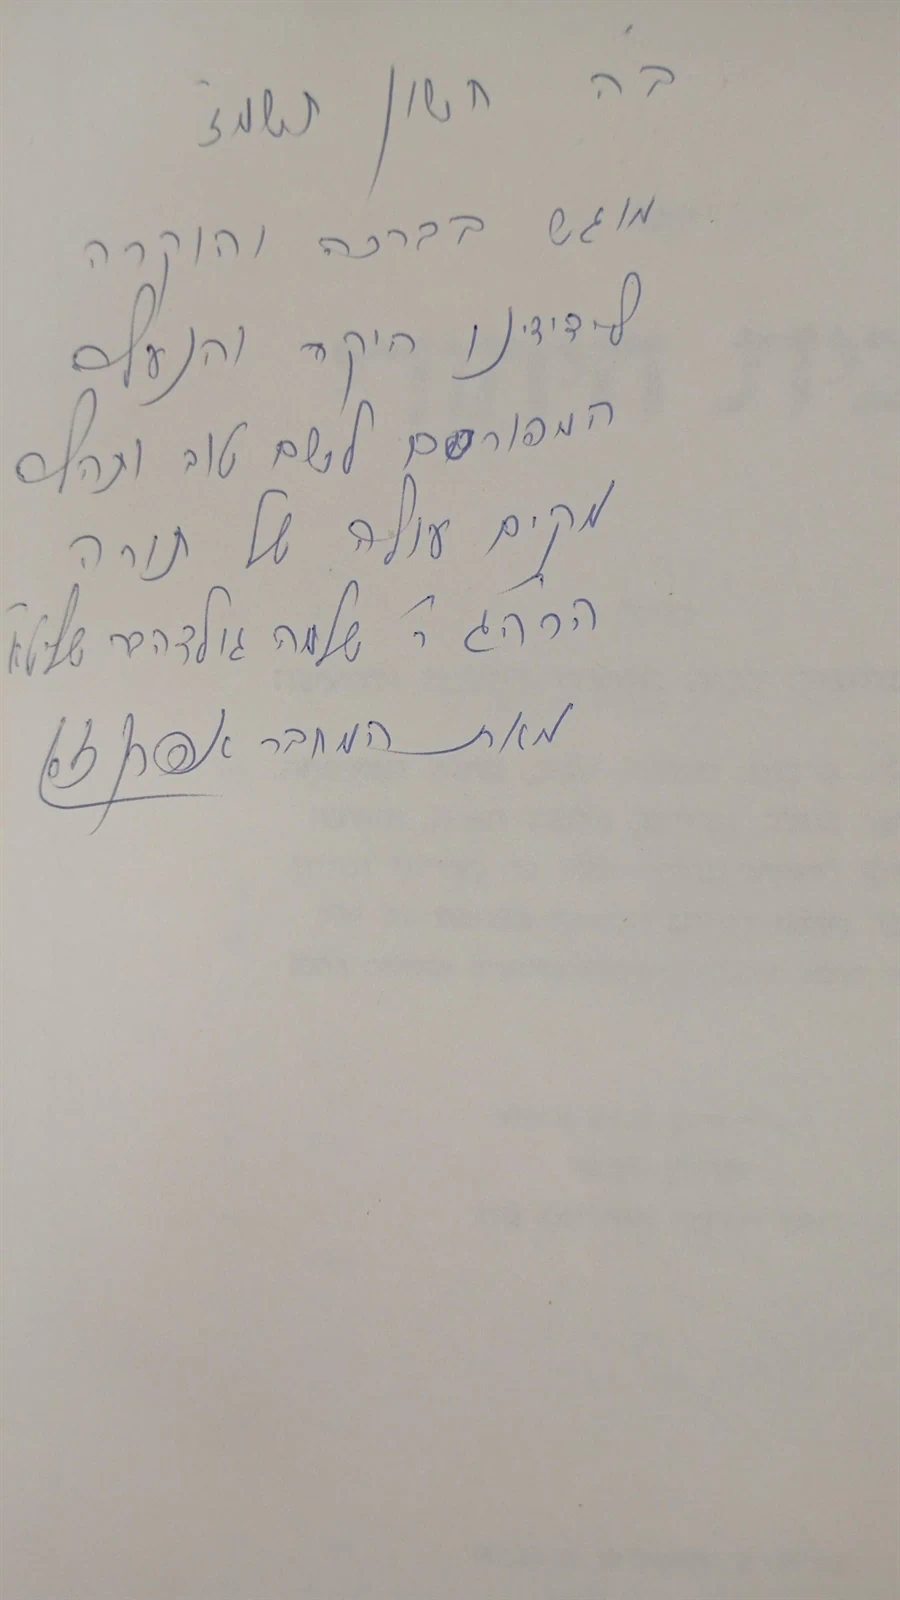 ב"ה חשון תשמ"ז
מוגש בברכה והוקרה
לידידינו היקר והנעלם
המפורסם לשם טוב ותהלה
מקים עולה של תורה
הרה"ג ר' שלמה גולדהבר שליט"א
מאת המחבר